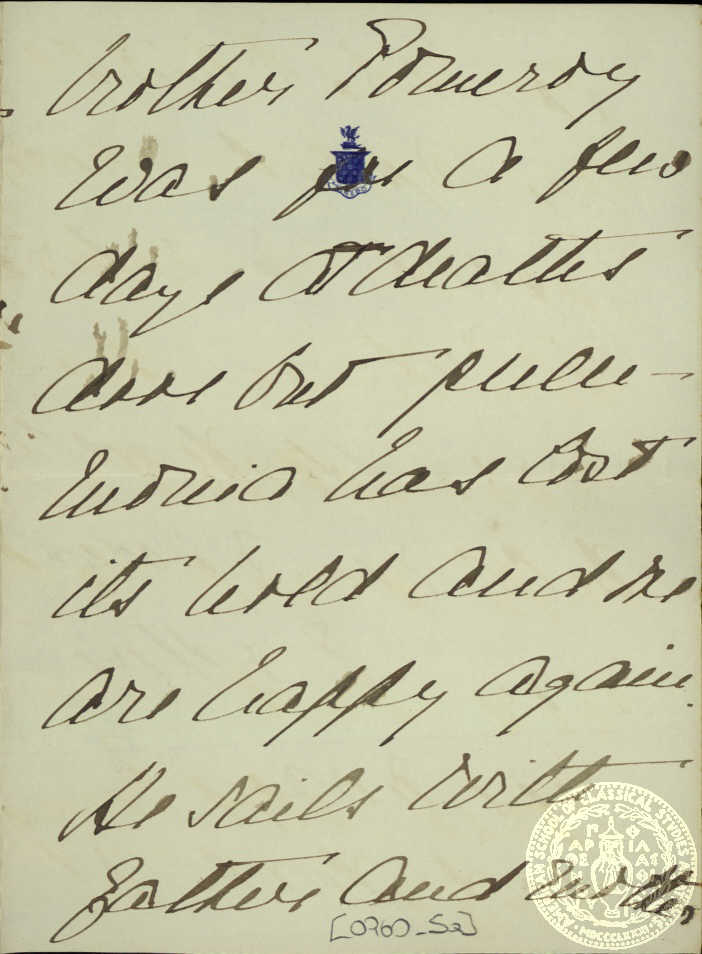 brother Pomeroy
was for a few
days at deaths
door but pneu-
monia has lost
its hold and we
are happy again.
He sails with
father and
[0960_52]
AMERICAN SCHOOL OF CLASSICAL STUDIES
MDCCCLXXXI